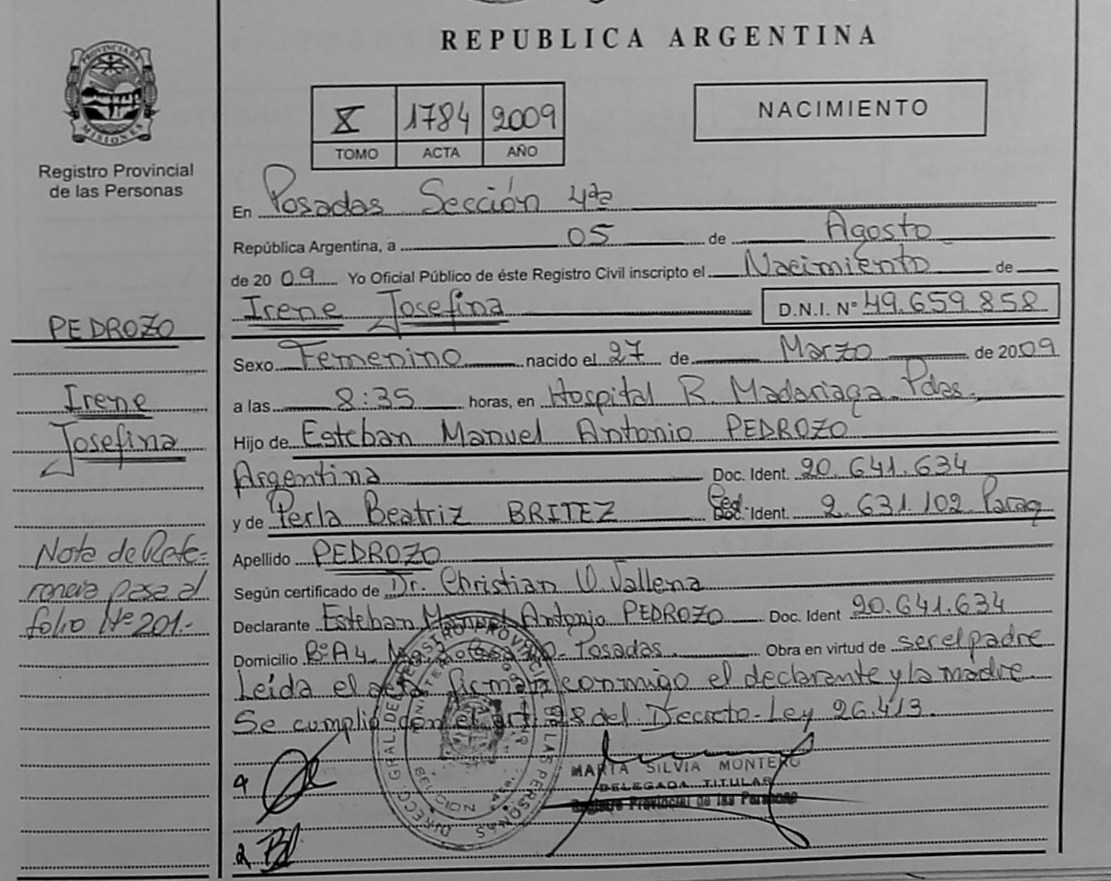 REPUBLICA ARGENTINA
PROVINCIA DE
MISIONES
Registro Provincial
de las Personas
X 1784 2009
TOMO ACTA AÑO
NACIMIENTO
En Posadas Sección 4ta
República Argentina, a 05 de Agosto
de 2009. Yo Oficial Público de éste Registro Civil inscripto el Nacimiento de
Irene Josefina D.N.I. Nº 49.659.858
Sexo Femenino nacido el 27 de Marzo de 2009
a las 8:35 horas, en Hospital R. Madariaga. Pdas.
Hijo de Esteban Manuel Antonio PEDROZO
Argentina Doc. Ident. 20.641.634
y de Perla Beatriz BRITEZ Ced. Ident. 2.631.102 Parag
Apellido PEDROZO
Según certificado de Dr. Christian V. Vallena
Declarante Esteban Manuel Antonio PEDROZO Doc. Ident 20.641.634
Domicilio Bº A4. Posadas. Obra en virtud de ser el padre
Leída el acta, firman conmigo el declarante y la madre.
Se cumplió con el art. 28 del Decreto-Ley 26.413.
MARTA SILVIA MONTERO
DELEGADA TITULAR
Registro Provincial de las Personas
PEDROZO
Irene
Josefina
Nota de Refe=
rencia pasa al
folio Nº 201.-